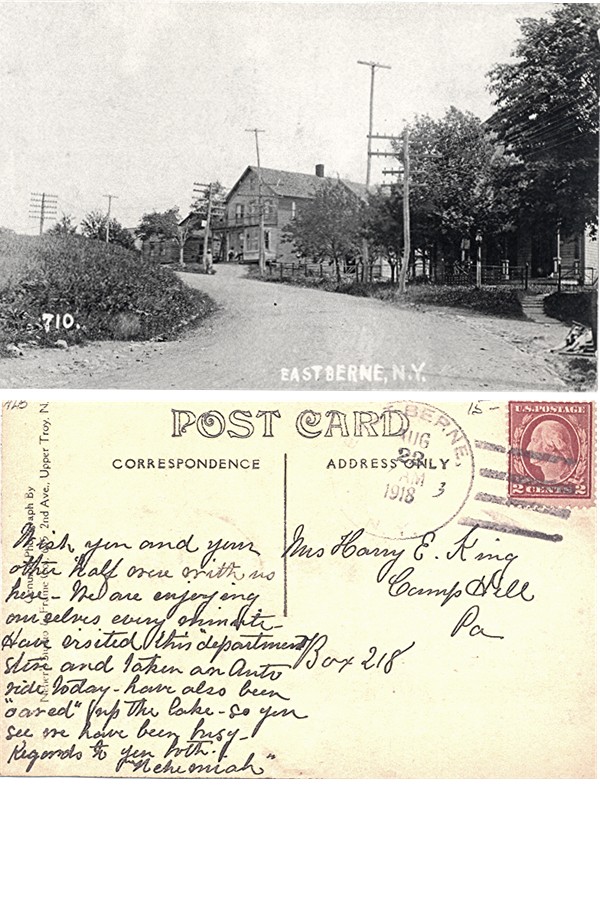 710.
EAST BERNE, N.Y.
POST CARD
CORRESPONDENCE
ADDRESS ONLY
BERNE,
AUG
22
AM
1918
3
15-
U.S. POSTAGE
2 CENTS 2
Photograph By
2nd Ave., Upper Troy, N.
Wish you and your
other half were with us
here - We are enjoying
ourselves every minute -
Have visited this "department
store and taken an Auto
ride today - have also been
"oared" up the lake - so you
see we have been busy -
Regards to you both.
"Nehemiah"
Mrs Harry E. King
Camp Hill
Pa
Box 218